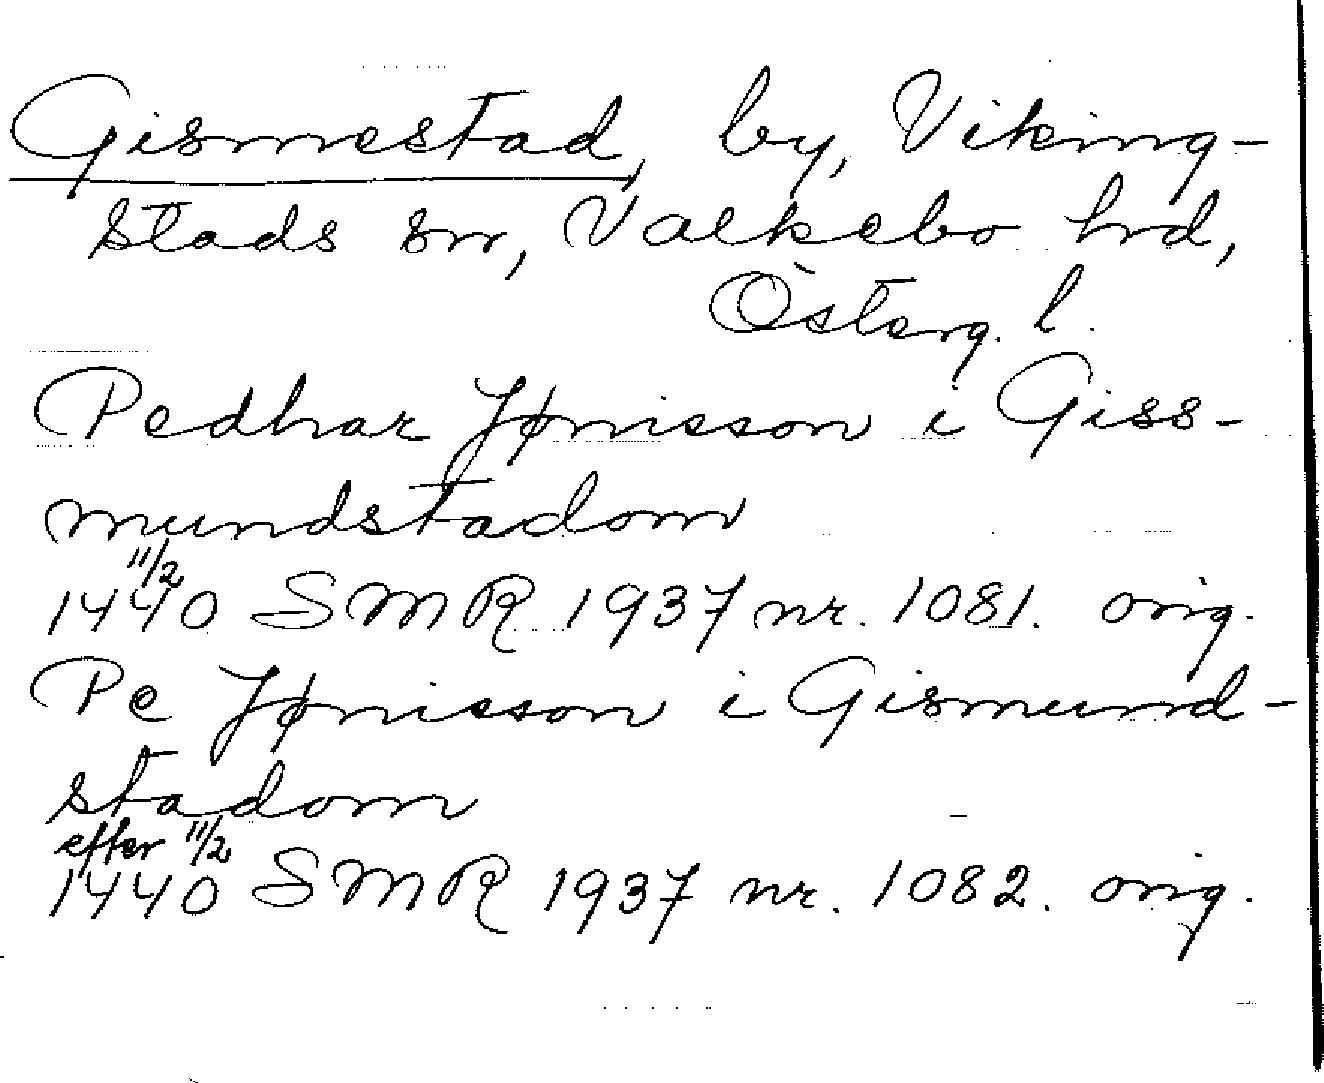 Gismestad, by, Viking-
stads sn, Valkebo hrd,
Österg. l.
Pedhar Jønisson i Giss-
mundstadom
11/2
1440 SMR 1937 nr. 1081. orig.
Pe Jønisson i Gismund-
stadom
efter 11/2
1440 SMR 1937 nr. 1082. orig.